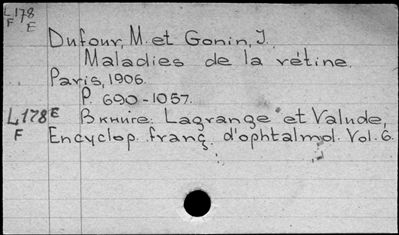 L178
F E
Dufour, M. et Gonin, J.
Maladies de la rétine.
Paris, 1906.
P. 690-1057.
L178E Вкниге: Lagrange et Valude,
F Encyclop. franç. d'ophtalmol. Vol. 6.